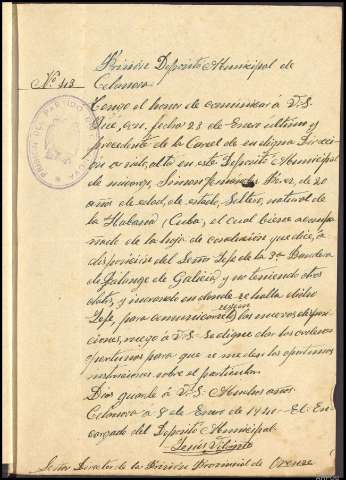 Prision Deposito Municipal de
Celanova
Nº 413
Tengo el honor de comunicar á V.S.
que, con fecha 23 de Enero último y
procedente de la Carcel de su digna Direc
ción
en este Deposito Municipal
de nuevo, Simon Perez, de 20
años de edad, de estado, Soltero, natural de
la Habana (Cuba, el cual viene acompa
ñado de la hoja de conducción que dice, á
disposición del Señor Jefe de la 3ª Bandera
de Falange de Galicia, y no teniendo otros
datos, é ignorando en donde se halla dicho
Jefe, para comunicarle las nuevas disposi
ciones, ruego á V.S. se digne dar las ordenes
oportunas para que se me den las oportunas
instrucciones sobre el particular.
Dios guarde á V.S. Muchos años
Celanova á 8 de Enero de 1940 - El En
cargado del Deposito Municipal
Jesús
Señor Director de la Prisión Provincial de Orense
PRISION DEL PARTIDO